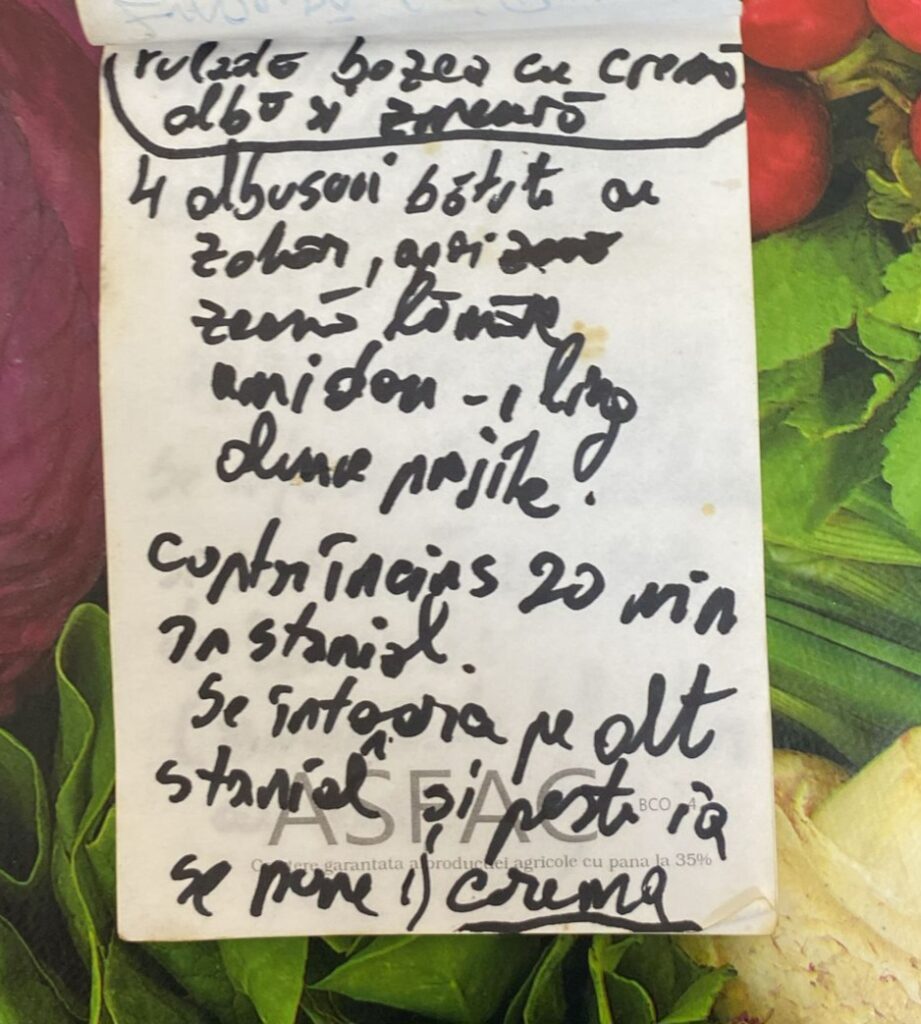 ruladă bezea cu cremă
albă și zmeură
4 albusuri bătute cu
zahăr, apoi
zeamă lămâie
amidon - 1 ling
dune prajite.
copt încins 20 min
in staniol.
Se întoarce pe alt
staniol și peste ea
ASFAC BCO 4
garantata a productiei agricole cu pana la 35%
se pune 1) crema